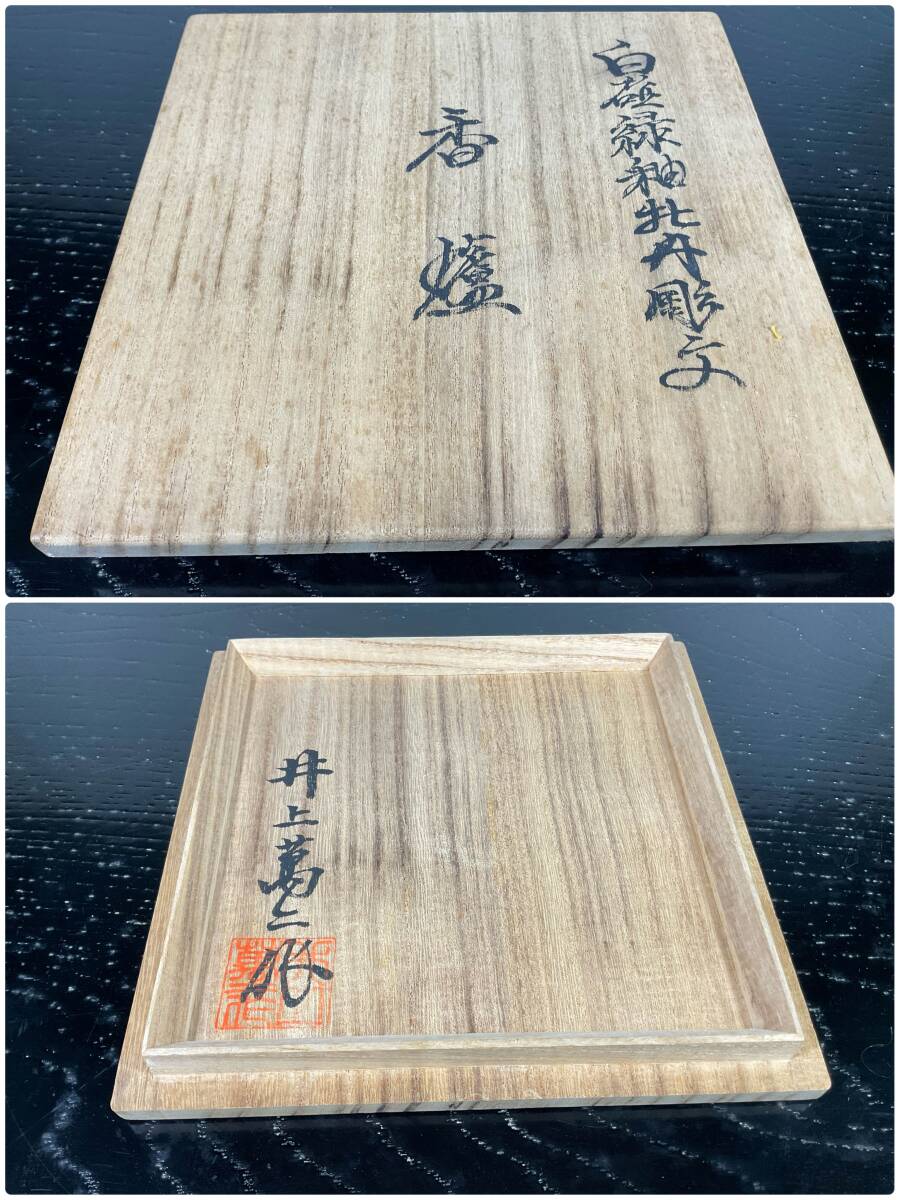 白磁緑釉牡丹彫文
香爐
井上萬二作